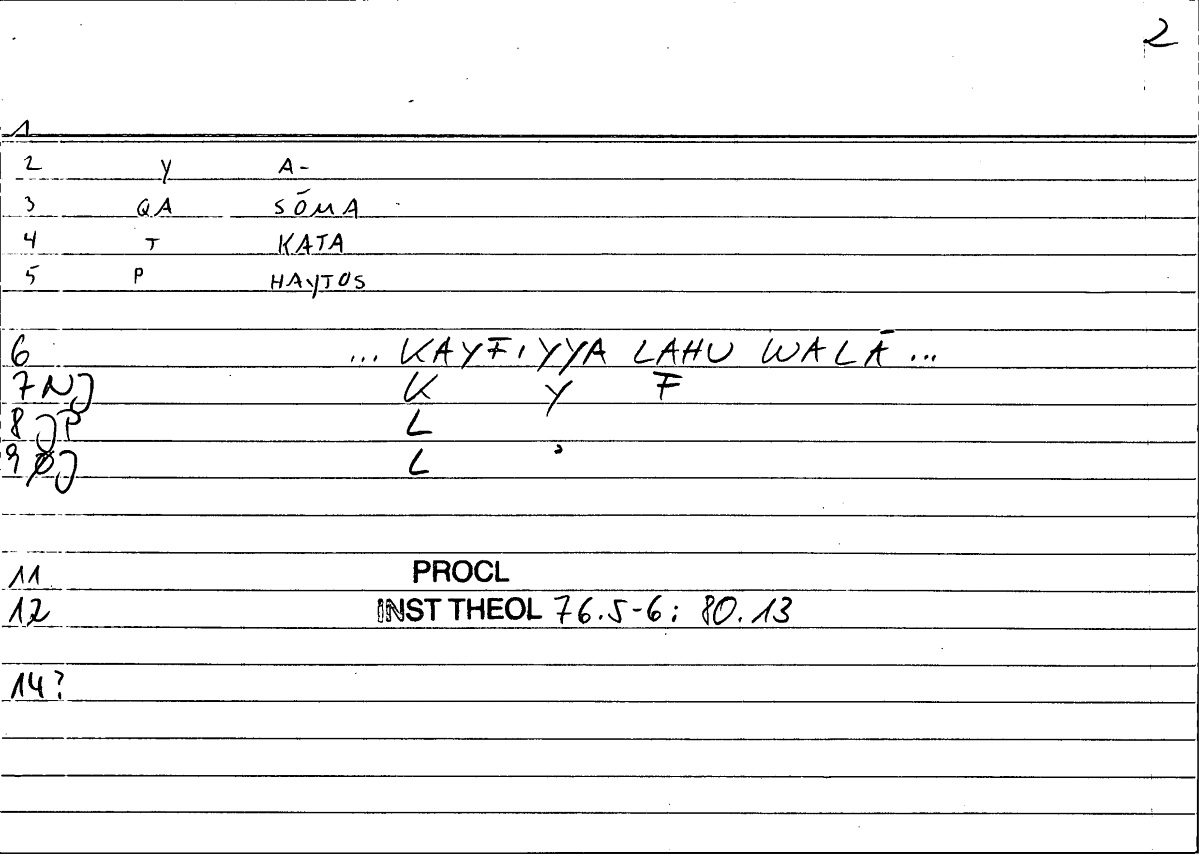 2
1
2 Y A-
3 QA SŌMA
4 T KATA
5 P HAYTOS
6 ... KAYFIYYA LAHU WALĀ ...
7 NJ K Y F
8 JP L
9 ØJ L ʾ
11 PROCL
12 INST THEOL 76.5-6; 80.13
14?